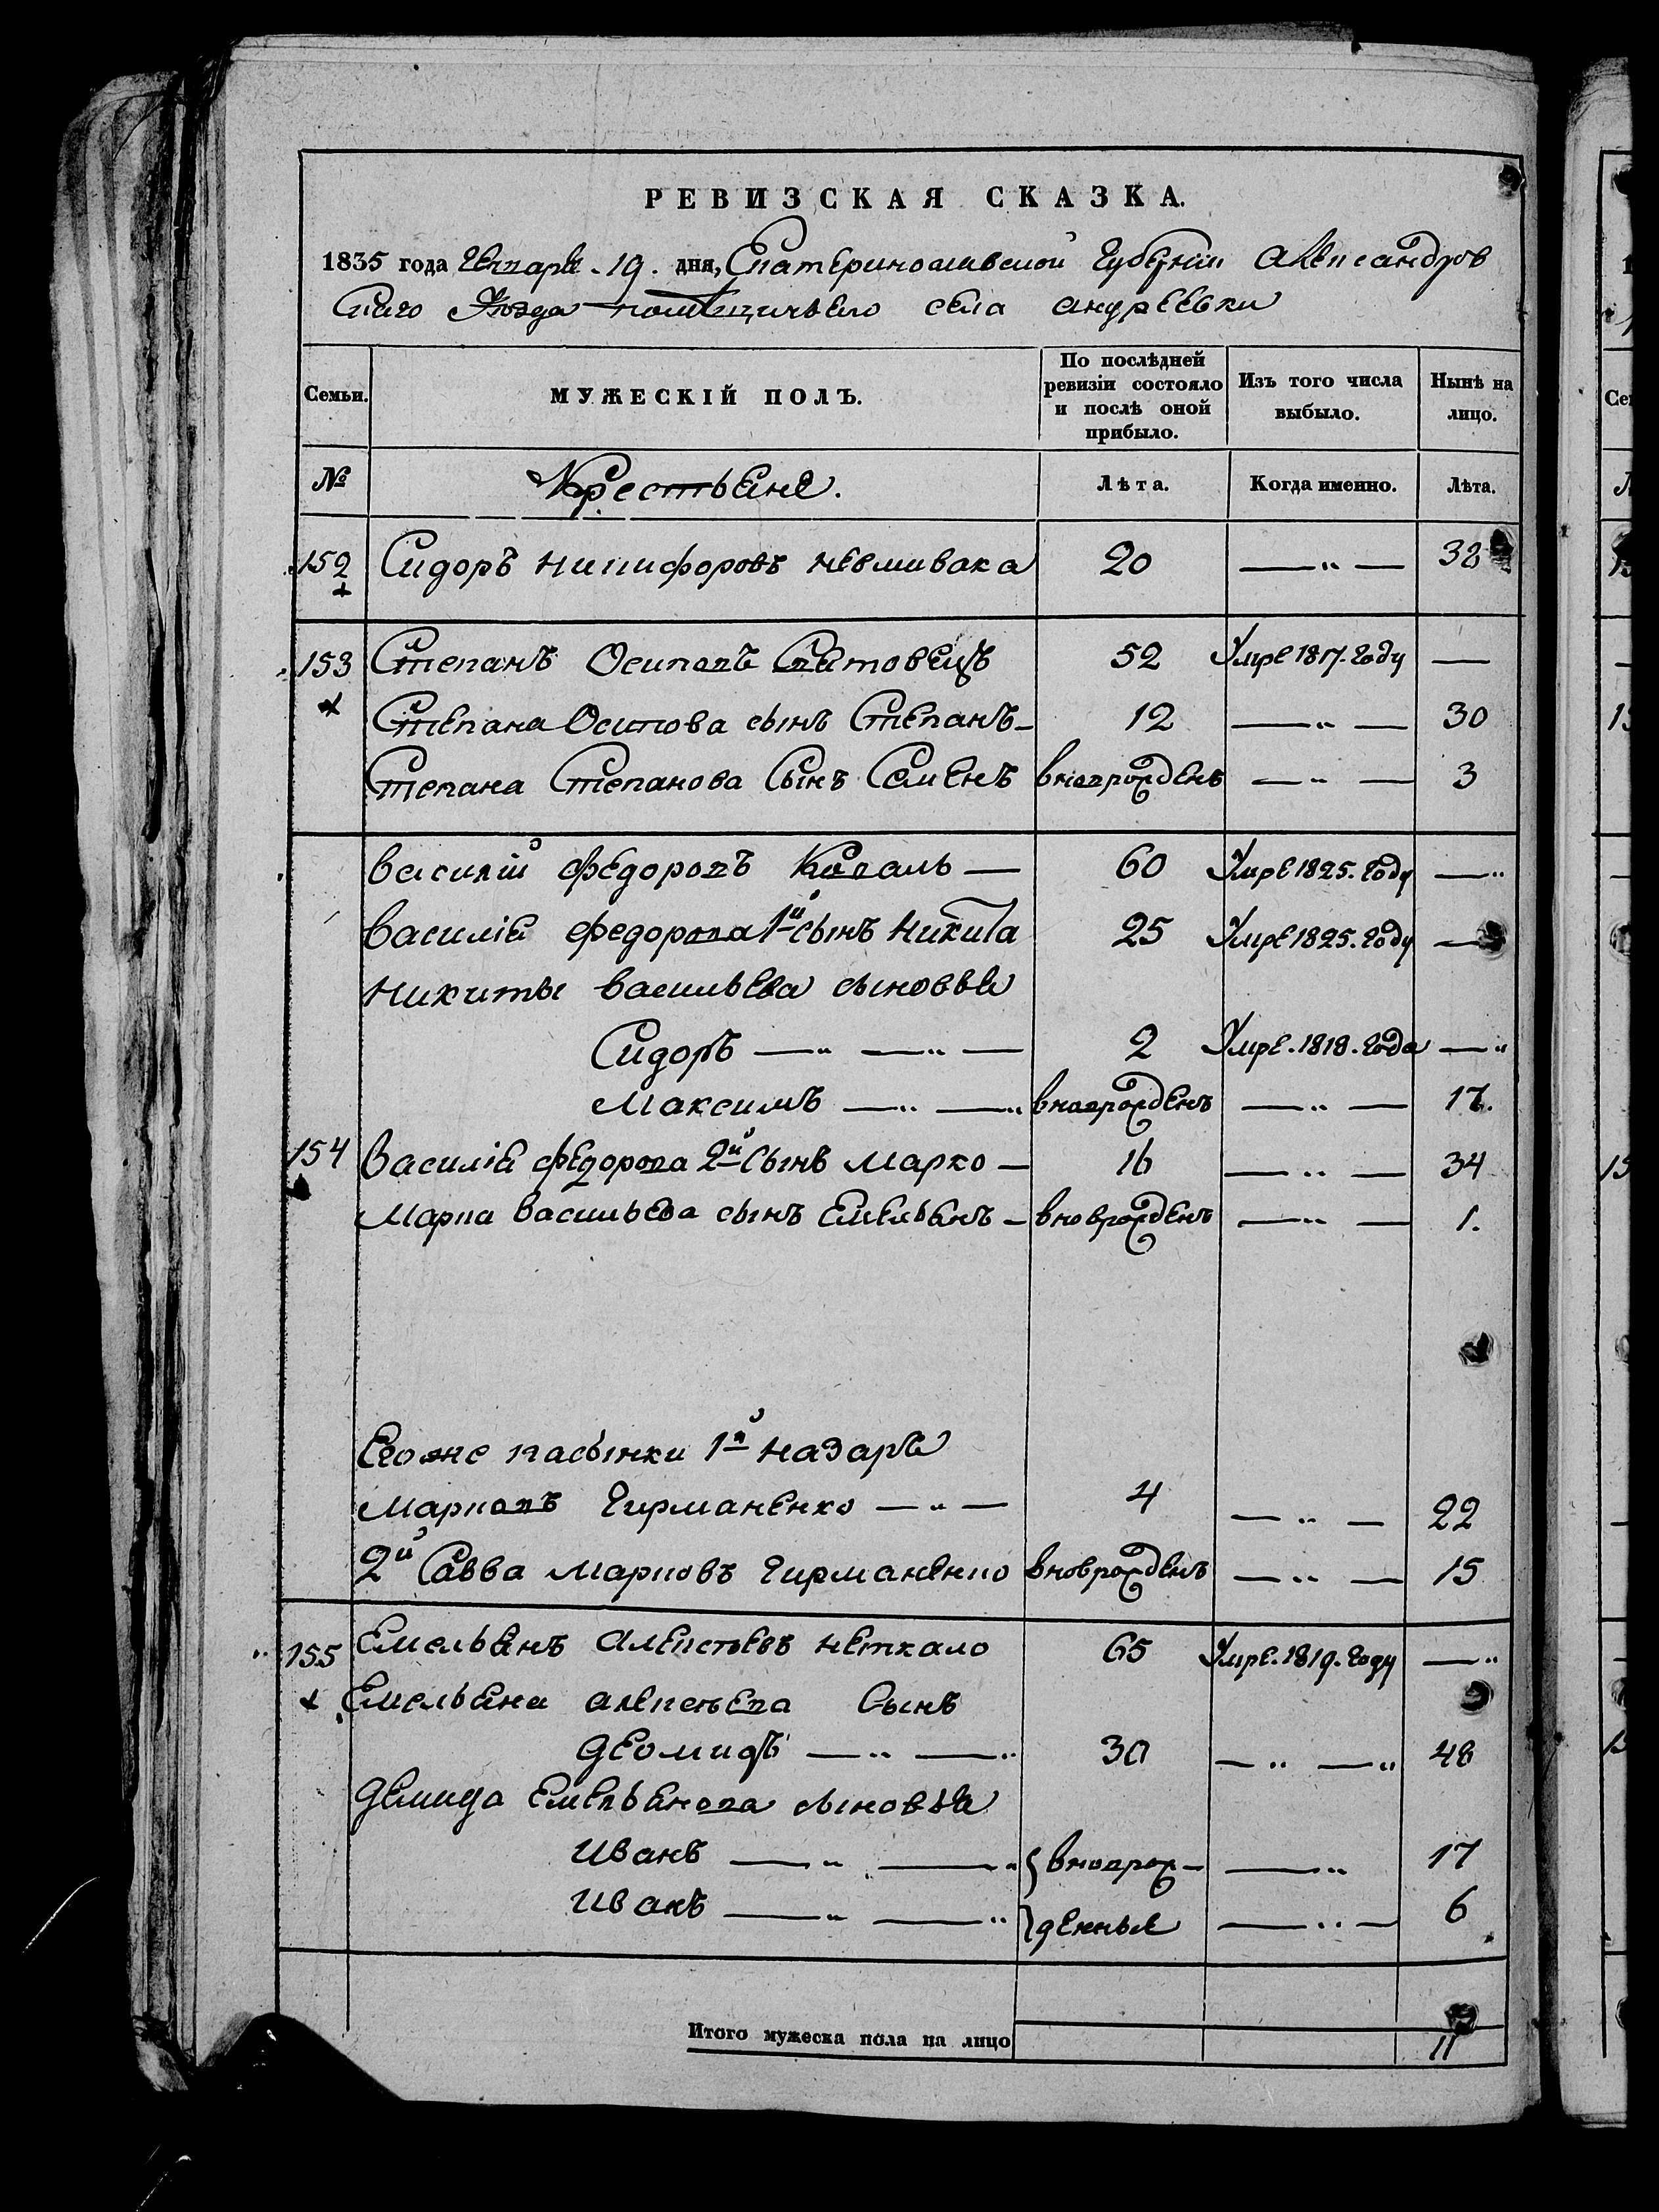 РЕВИЗСКАЯ СКАЗКА.
1835 года Генваря . 19 . дня, Екатеринославской Губернии Александров
скаго Уезда помещичьего села андреевки
Семьи. МУЖЕСКІЙ ПОЛЪ. По послѣдней ревизіи состояло и послѣ оной прибыло. Изъ того числа выбыло. Нынѣ на лицо.
№ Крестьяне. Лѣта. Когда именно. Лѣта.
152 Сидоръ Никифоровъ 20 — „ — 38
153 Степанъ Осиповъ 52 Умре 1817. Году —
Степана Осипова сынъ Степанъ — 12 — „ — 30
Степана Степанова Сынъ Семенъ вноврожденъ — „ — 3
василій Федоровъ Коваль — 60 Умре 1825. Году — „
василія федорова 1й сынъ Никита 25 Умре 1825. Году —
Никиты васильева сыновья
Сидоръ — „ — „ — 2 Умре . 1818 . Года — „
Максимъ — „ — „ вноврожденъ — „ — 17.
154 василія федорова 2й Сынъ Марко — 16 — „ — 34
Марка васильева сынъ Емельянъ — вноврожденъ — „ — 1.
Егоже пасынки 1й Назаръ
Марковъ Гирманенко — „ — 4 — „ — 22
2й Савва Марковъ Гирманенко вноврожденъ — „ — 15
155 Емельянъ Алексеевъ Неткало 65 Умре . 1819 . Году — „
Емельяна алексеева Сынъ
деомидъ — „ — „ 30 — „ — „ 48
демида Емельянова сыновья
Иванъ — „ — „ вноврож- — „ 17
Иванъ — „ — „ денные — „ — 6
Итого мужеска пола на лицо 11